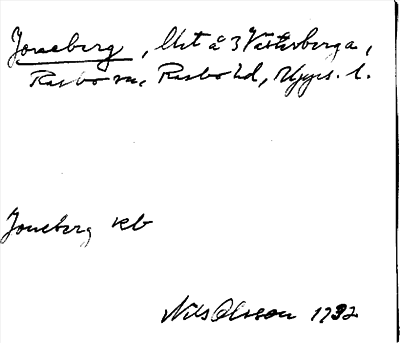 Joneberg, Urt å 3 Västerberga,
Rasbo sn, Rasbo hd, Upps. l.
Joneberg kb
Nils Olsson 1932